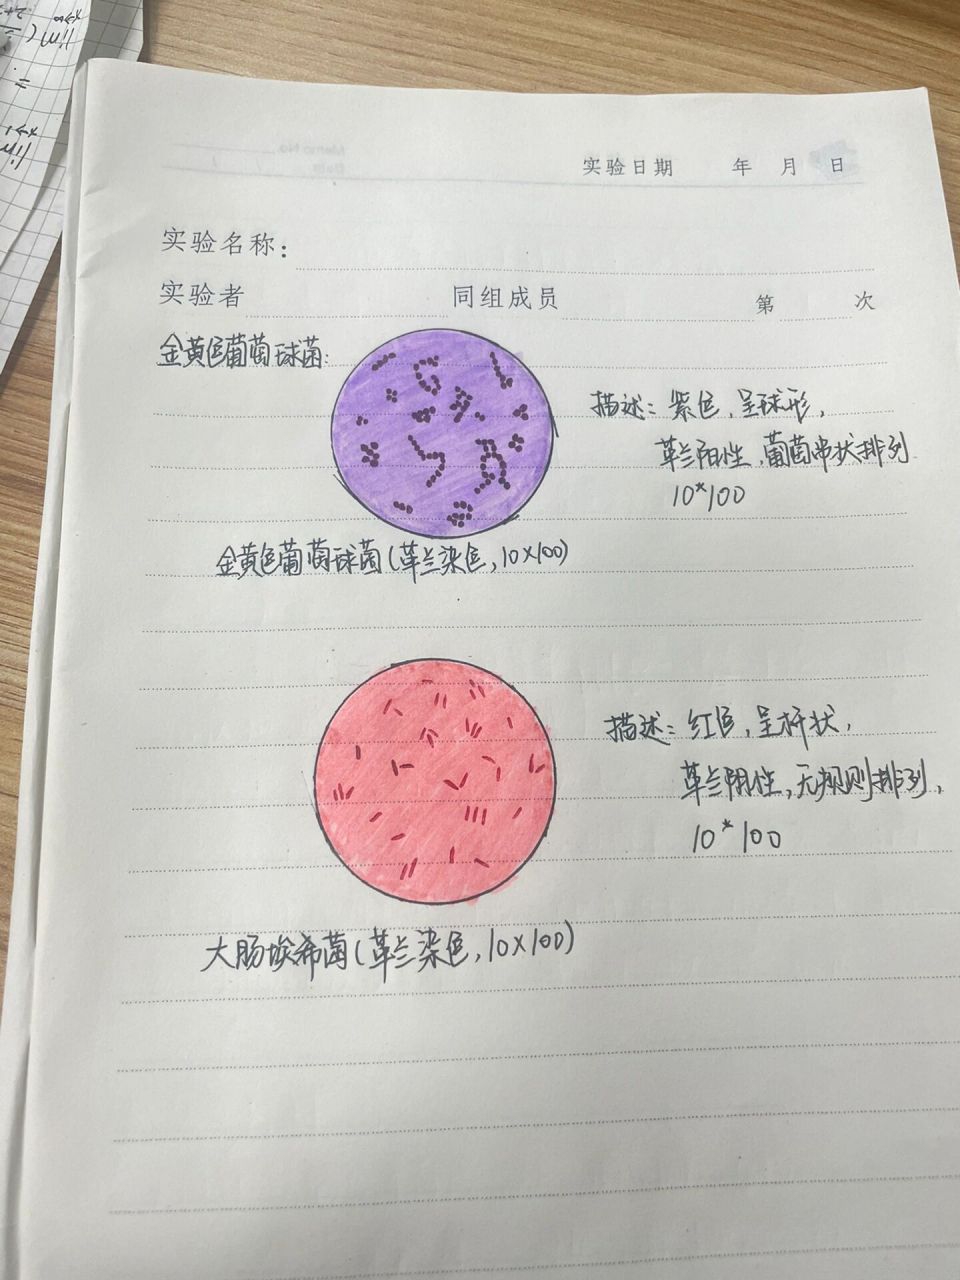 实验日期 年 月 日
实验名称:
实验者 同组成员 第 次
金黄色葡萄球菌:
描述: 紫色,呈球形,
革兰阳性,葡萄串状排列
10*100
金黄色葡萄球菌(革兰染色,10×100)
描述: 红色,呈杆状,
革兰阴性,无规则排列,
10*100
大肠埃希菌(革兰染色,10×100)